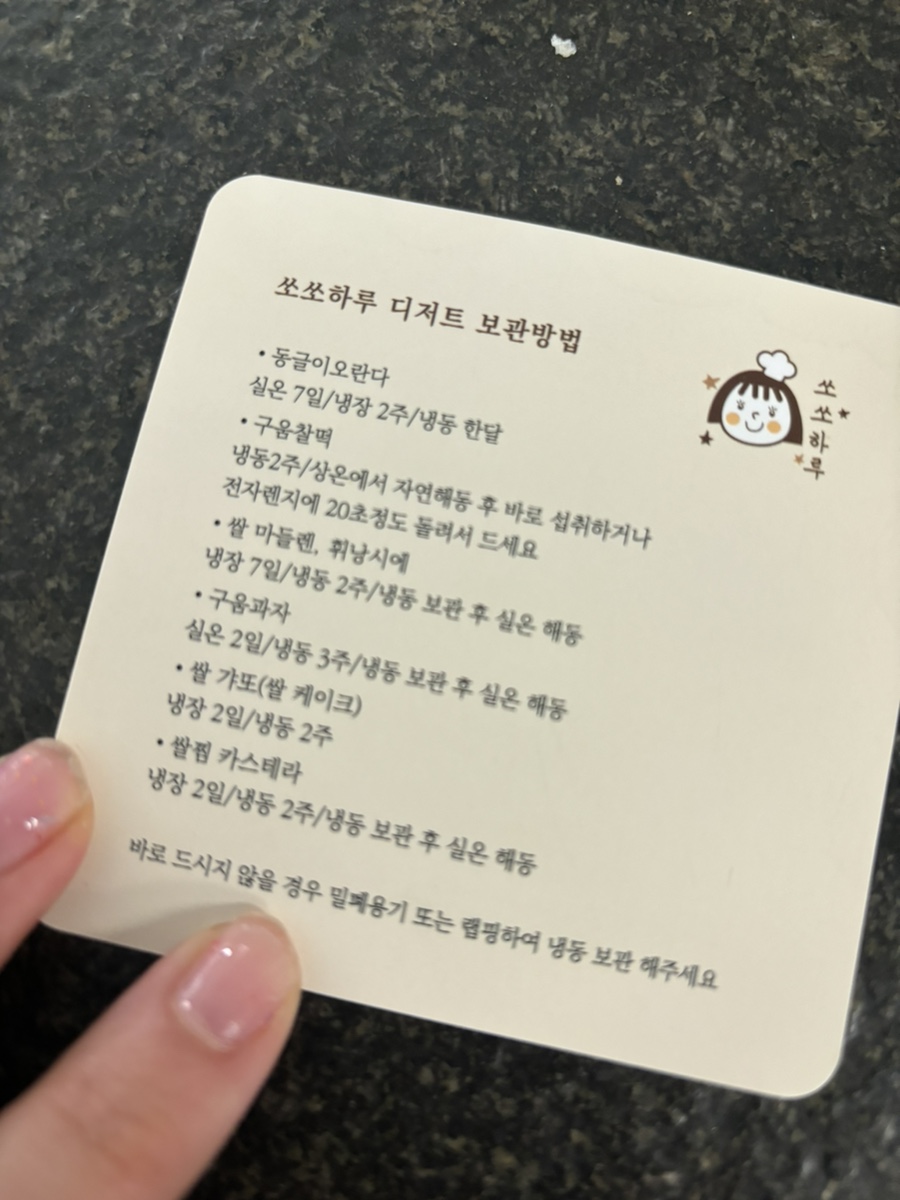 쏘쏘하루 디저트 보관방법
• 동글이오란다
실온 7일/냉장 2주/냉동 한달
• 구움찰떡
냉동2주/상온에서 자연해동 후 바로 섭취하거나
전자렌지에 20초정도 돌려서 드세요
• 쌀 마들렌, 휘낭시에
냉장 7일/냉동 2주/냉동 보관 후 실온 해동
• 구움과자
실온 2일/냉동 3주/냉동 보관 후 실온 해동
• 쌀 갸또(쌀 케이크)
냉장 2일/냉동 2주
• 쌀찜 카스테라
냉장 2일/냉동 2주/냉동 보관 후 실온 해동
바로 드시지 않을 경우 밀폐용기 또는 랩핑하여 냉동 보관 해주세요
쏘쏘하루